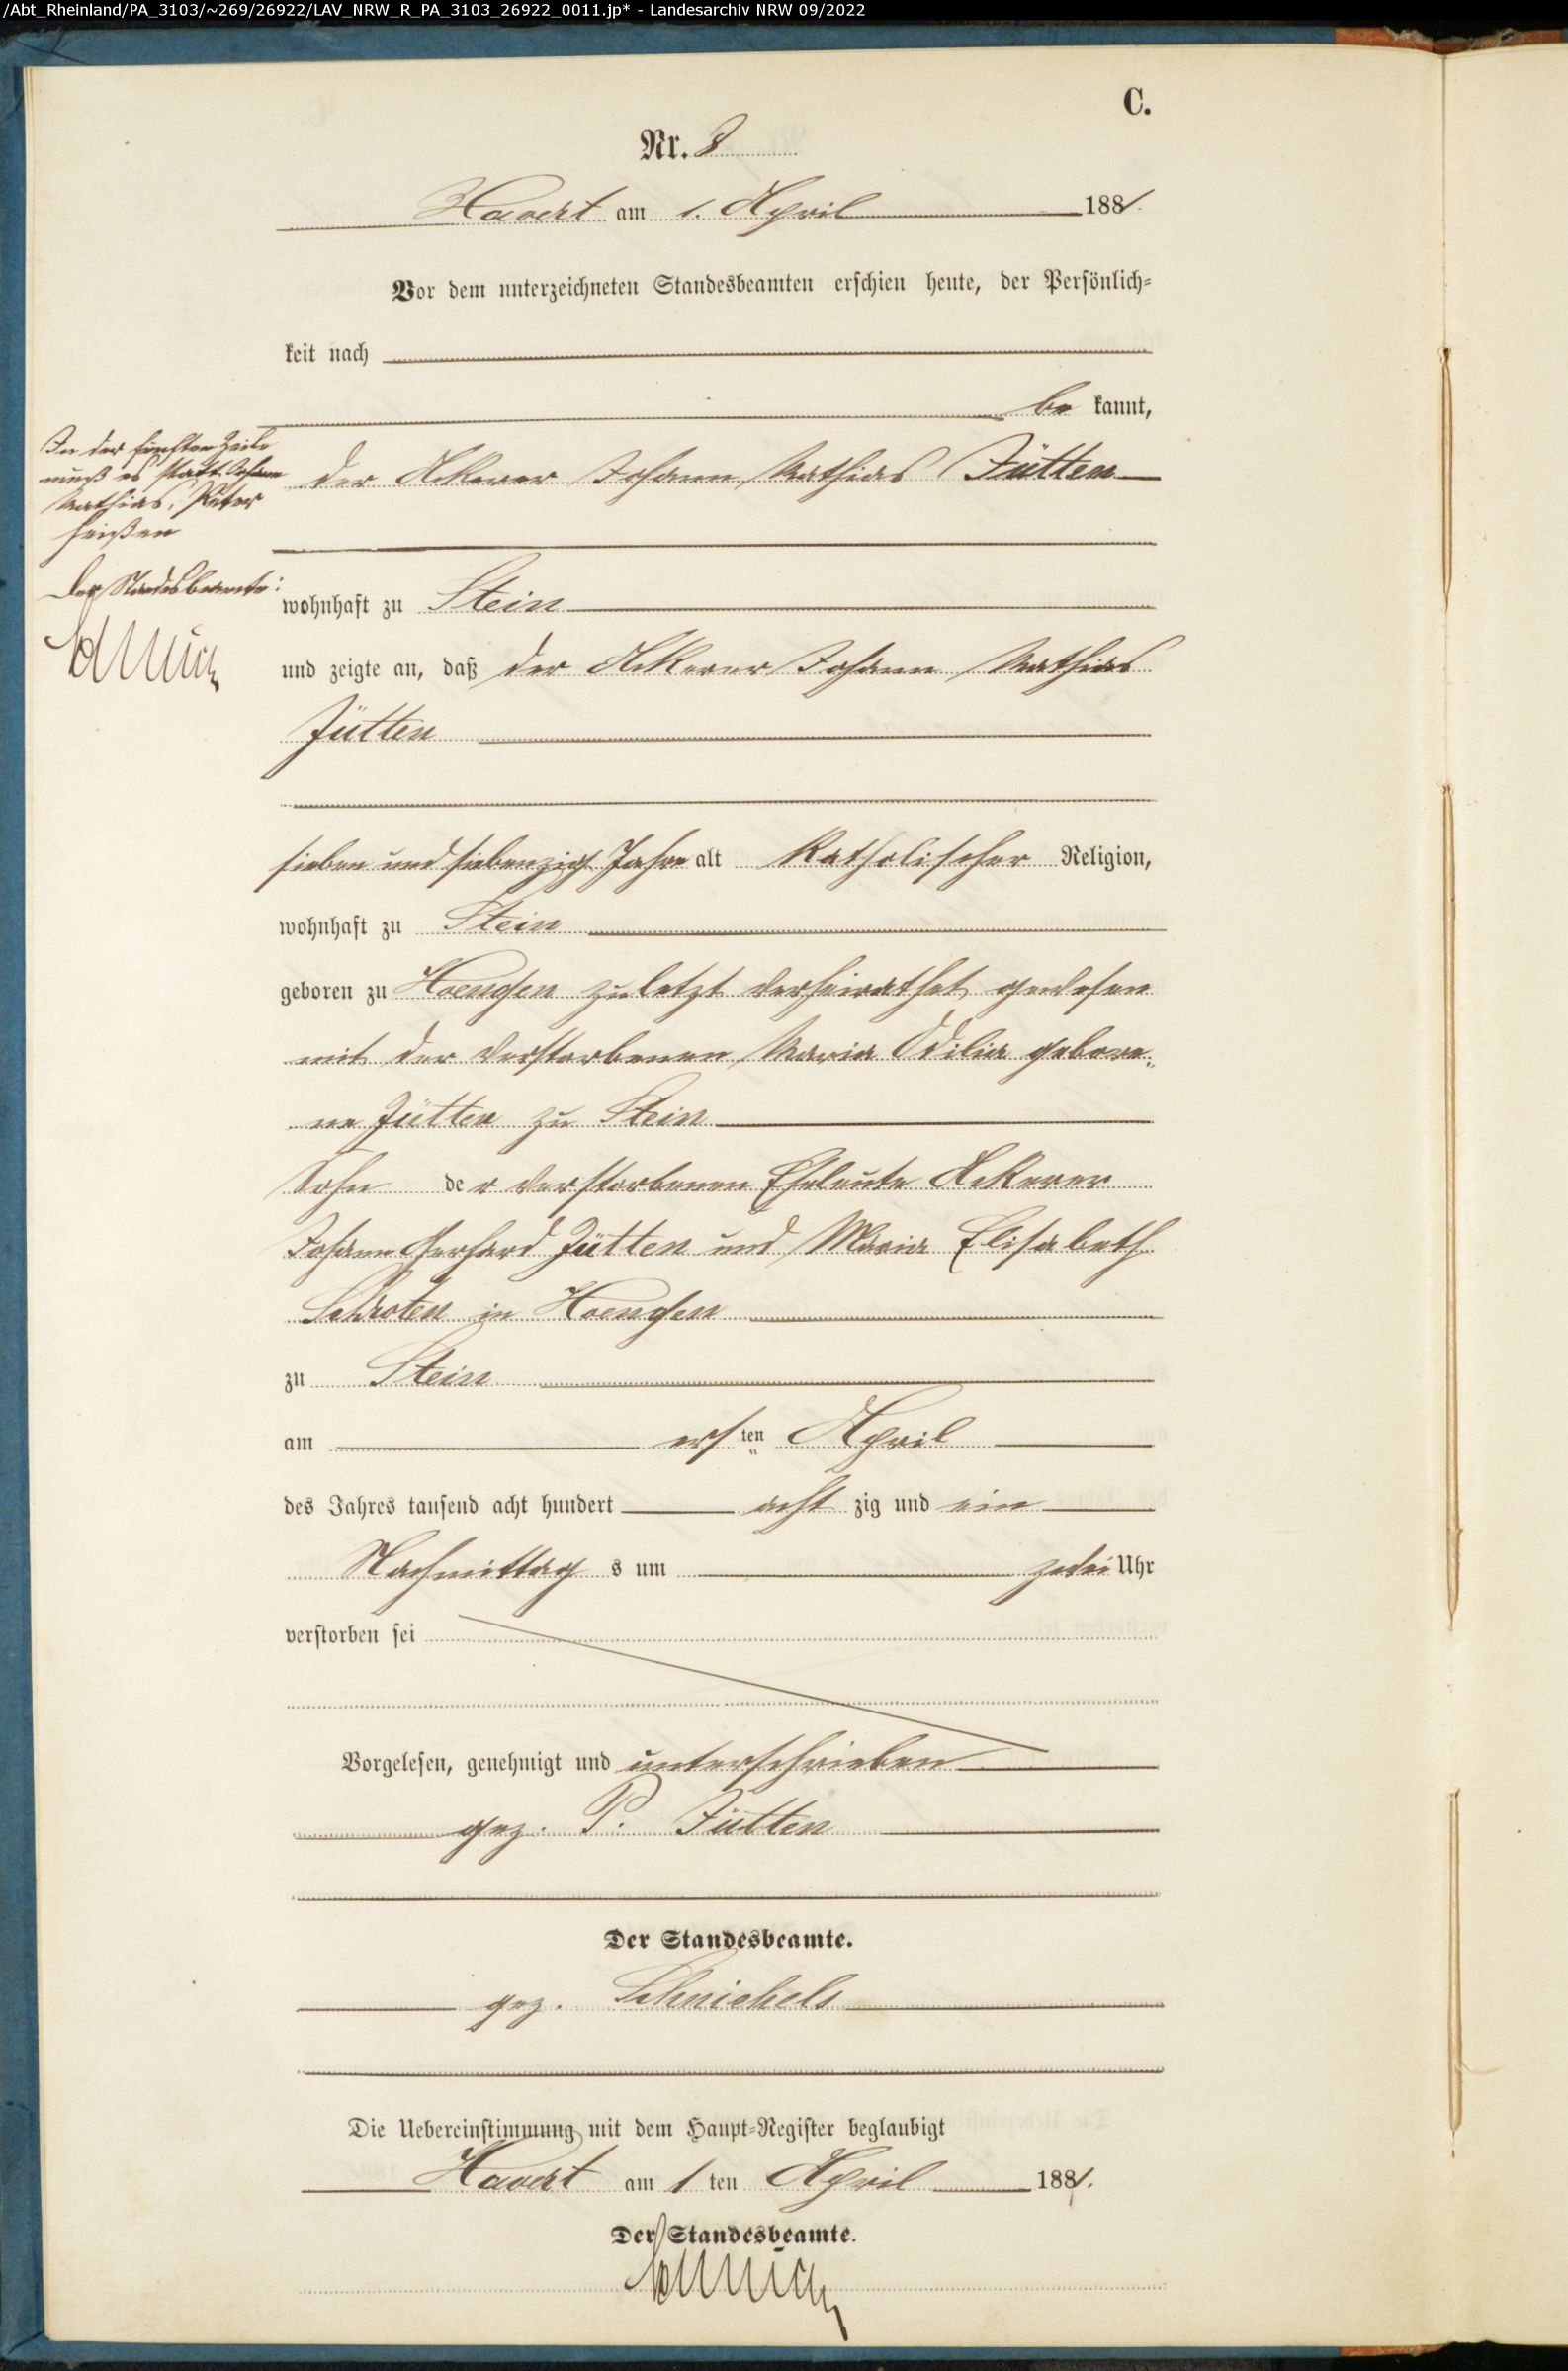 /Abt_Rheinland/PA_3103/~269/26922/LAV_NRW_R_PA_3103_26922_0011.jp* - Landesarchiv NRW 09/2022
C.
Nr. 8
Havert am 1. April 1881.
Vor dem unterzeichneten Standesbeamten erschien heute, der Persönlich=
keit nach
be kannt,
der Ackerer Johann Mathias Jütten
In der fünften Zeile
muß es statt Johann
Mathias, Peter
heißen
Der Standesbeamte:
wohnhaft zu Stein
und zeigte an, daß der Ackerer Johann Mathias
Jütten
sieben und siebenzig Jahre alt Katholischer Religion,
wohnhaft zu Stein
geboren zu Hoengen zuletzt verheirathet gewesen
mit der verstorbenen Maria Odilia gebore=
ne Jütten zu Stein
Sohn der verstorbenen Eheleute Ackerer
Johann Gerhard Jütten und Maria Elisabeth
Schroten in Hoengen
zu Stein
am ersten April
des Jahres tausend acht hundert acht zig und ein
Nachmittag s um zwei Uhr
verstorben sei
Vorgelesen, genehmigt und unterschrieben
gez. P. Jütten
Der Standesbeamte.
gez.
Die Uebereinstimmung mit dem Haupt=Register beglaubigt
Havert am 1 ten April 1881.
Der Standesbeamte.